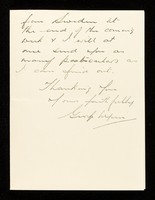 from Sweden at
the end of the coming
week & I will at
once send you as
many particulars as
I can find out.
Thanking you
yours faithfully